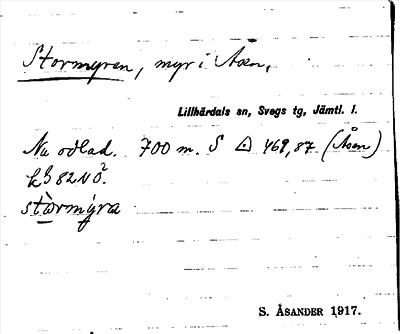 Stormyren, myr i Åsen.
Lillhärdals sn, Svegs tg, Jämtl. l.
Nu odlad. 700 m. S △ 469,87 (Åsen)
stòrmýra
S. ÅSANDER 1917.